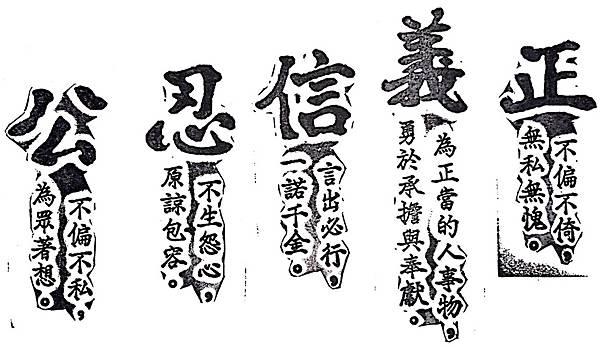 正
不偏不倚，
無私無愧。
義
為正當的人事物，
勇於承擔與奉獻。
信
言出必行，
一諾千金。
忍
不生怨心，
原諒包容。
公
不偏不私，
為眾著想。